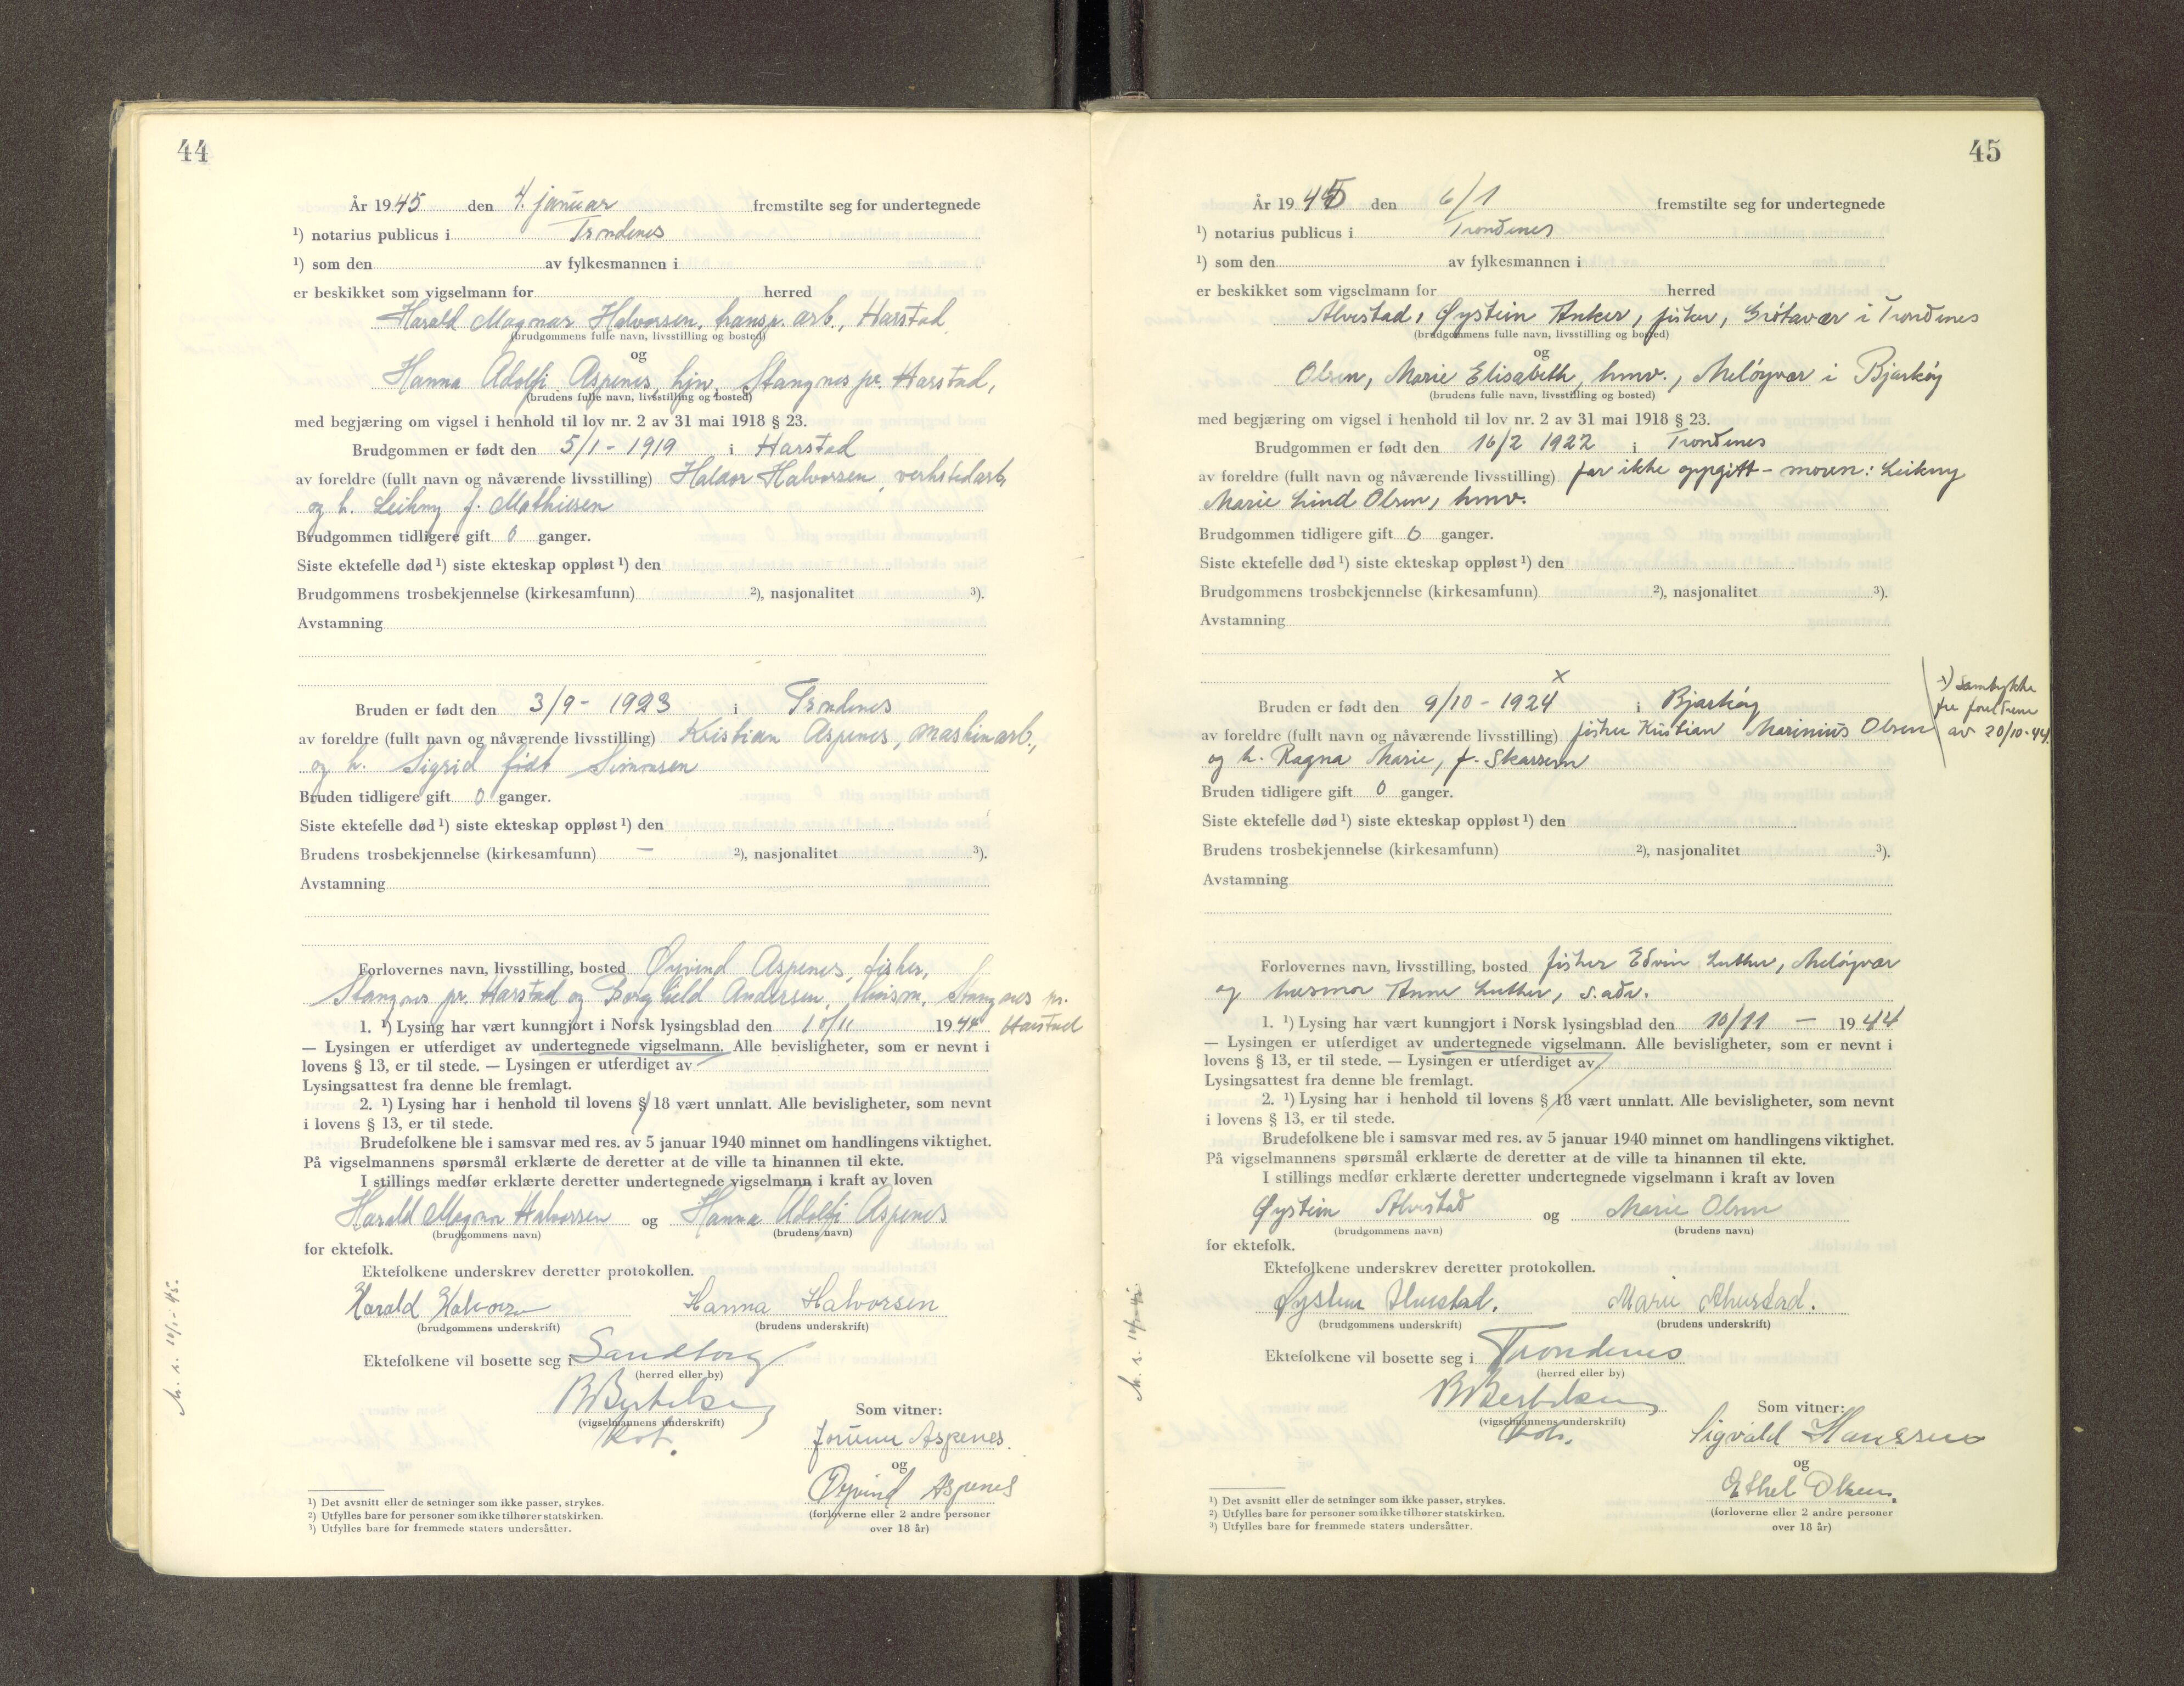 44
År 1945 den 4. januar fremstilte seg for undertegnede
¹) notarius publicus i Trondenes
¹) som den av fylkesmannen i
er beskikket som vigselmann for herred
Harald Magnar Halvorsen, transp. arb., Harstad
(brudgommens fulle navn, livsstilling og bosted)
og
Hanna Adolfi Aspenes, hjv, Stangnes pr. Harstad,
(brudens fulle navn, livsstilling og bosted)
med begjæring om vigsel i henhold til lov nr. 2 av 31 mai 1918 § 23.
Brudgommen er født den 5/1 - 1919 i Harstad
av foreldre (fullt navn og nåværende livsstilling) Haldor Halvorsen, verkstedarb,
og h. Leikny f. Mathiesen
Brudgommen tidligere gift 0 ganger.
Siste ektefelle død ¹) siste ekteskap oppløst ¹) den
Brudgommens trosbekjennelse (kirkesamfunn) ²), nasjonalitet ³).
Avstamning
Bruden er født den 3/9 - 1923 i Trondenes
av foreldre (fullt navn og nåværende livsstilling) Kristian Aspenes, maskinarb.,
og h. Sigrid født Simonsen
Bruden tidligere gift 0 ganger.
Siste ektefelle død ¹) siste ekteskap oppløst ¹) den
Brudens trosbekjennelse (kirkesamfunn) — ²), nasjonalitet ³).
Avstamning
Forlovernes navn, livsstilling, bosted Øyvind Aspenes, fisker,
Stangnes pr. Harstad og Borghild Andersen, Stangnes pr.
1. ¹) Lysing har vært kunngjort i Norsk lysingsblad den 10/11 1944 Harstad
— Lysingen er utferdiget av undertegnede vigselmann. Alle bevisligheter, som er nevnt i
lovens § 13, er til stede. — Lysingen er utferdiget av
Lysingsattest fra denne ble fremlagt.
2. ¹) Lysing har i henhold til lovens § 18 vært unnlatt. Alle bevisligheter, som nevnt
i lovens § 13, er til stede.
Brudefolkene ble i samsvar med res. av 5 januar 1940 minnet om handlingens viktighet.
På vigselmannens spørsmål erklærte de deretter at de ville ta hinannen til ekte.
I stillings medfør erklærte deretter undertegnede vigselmann i kraft av loven
Harald Magnar Halvorsen og Hanna Adolfi Aspenes
(brudgommens navn) (brudens navn)
for ektefolk.
Ektefolkene underskrev deretter protokollen.
Harald Halvorsen Hanna Halvorsen
(brudgommens underskrift) (brudens underskrift)
Ektefolkene vil bosette seg i Sandtorg
(herred eller by)
B Bertelsen
(vigselmannens underskrift)
Som vitner:
Aspenes
og
Øyvind Aspenes
(forloverne eller 2 andre personer
over 18 år)
¹) Det avsnitt eller de setninger som ikke passer, strykes.
²) Utfylles bare for personer som ikke tilhører statskirken.
³) Utfylles bare for fremmede staters undersåtter.
10/1 - 45.
45
År 1945 den 6/1 fremstilte seg for undertegnede
¹) notarius publicus i Trondenes
¹) som den av fylkesmannen i
er beskikket som vigselmann for herred
Alvestad, Øystein Anker, fisker, Grötavær i Trondenes
(brudgommens fulle navn, livsstilling og bosted)
og
Olsen, Marie Elisabeth, hmv., Meløyvær i Bjarkøy
(brudens fulle navn, livsstilling og bosted)
med begjæring om vigsel i henhold til lov nr. 2 av 31 mai 1918 § 23.
Brudgommen er født den 16/2 1922 i Trondenes
av foreldre (fullt navn og nåværende livsstilling) far ikke oppgitt - moren: Leikny
Marie Lind Olsen, hmv.
Brudgommen tidligere gift 0 ganger.
Siste ektefelle død ¹) siste ekteskap oppløst ¹) den
Brudgommens trosbekjennelse (kirkesamfunn) ²), nasjonalitet ³).
Avstamning
Bruden er født den 9/10 - 1924 x i Bjarkøy
x) Samtykke
fra foreldrene
av 20/10-44.
av foreldre (fullt navn og nåværende livsstilling) fisker Kristian Marinius Olsen
og h. Ragna Marie, f. Skarsem
Bruden tidligere gift 0 ganger.
Siste ektefelle død ¹) siste ekteskap oppløst ¹) den
Brudens trosbekjennelse (kirkesamfunn) ²), nasjonalitet ³).
Avstamning
Forlovernes navn, livsstilling, bosted fisker Edvin Luther, Meløyvær
og husmor Anne Luther, s. adr.
1. ¹) Lysing har vært kunngjort i Norsk lysingsblad den 10/11 — 1944
— Lysingen er utferdiget av undertegnede vigselmann. Alle bevisligheter, som er nevnt i
lovens § 13, er til stede. — Lysingen er utferdiget av
Lysingsattest fra denne ble fremlagt.
2. ¹) Lysing har i henhold til lovens § 18 vært unnlatt. Alle bevisligheter, som nevnt
i lovens § 13, er til stede.
Brudefolkene ble i samsvar med res. av 5 januar 1940 minnet om handlingens viktighet.
På vigselmannens spørsmål erklærte de deretter at de ville ta hinannen til ekte.
I stillings medfør erklærte deretter undertegnede vigselmann i kraft av loven
Øystein Alvestad og Marie Olsen
(brudgommens navn) (brudens navn)
for ektefolk.
Ektefolkene underskrev deretter protokollen.
Øystein Alvestad. Marie Alvestad.
(brudgommens underskrift) (brudens underskrift)
Ektefolkene vil bosette seg i Trondenes
(herred eller by)
B Bertelsen
(vigselmannens underskrift)
Som vitner:
Sigvald Hanssen
og
Ethel Olsen.
(forloverne eller 2 andre personer
over 18 år)
¹) Det avsnitt eller de setninger som ikke passer, strykes.
²) Utfylles bare for personer som ikke tilhører statskirken.
³) Utfylles bare for fremmede staters undersåtter.